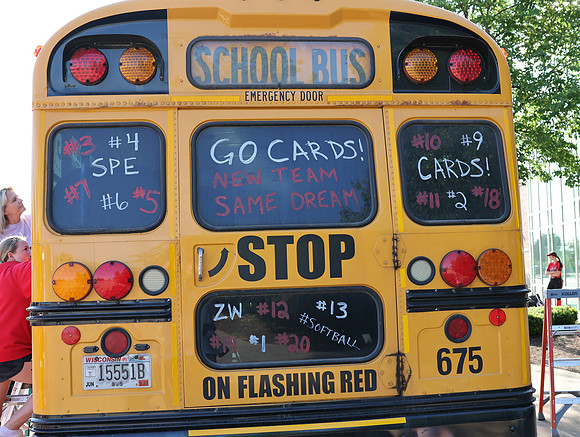 SCHOOL BUS
EMERGENCY DOOR
#3 #4
SPE
#7 #6 #5
GO CARDS!
NEW TEAM
SAME DREAM
#10 #9
CARDS!
#11 #2 #18
STOP
ZW #12 #13
#SOFTBALL
#1 #20
ON FLASHING RED
WISCONSIN
JUN 15551B
675